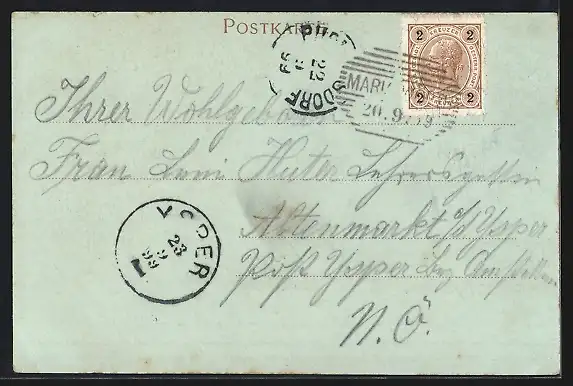 POSTKARTE
2 KREUZER 2
2 2
22 9 99
DORF
MARK
20. 9. 99
Ihrer Wohlgeboren
Frau Huter Lehrersgattin
Altenmarkt a/d Ysper
YSPER
23 9 99
Post Ysper bez Amstetten
N. Ö.